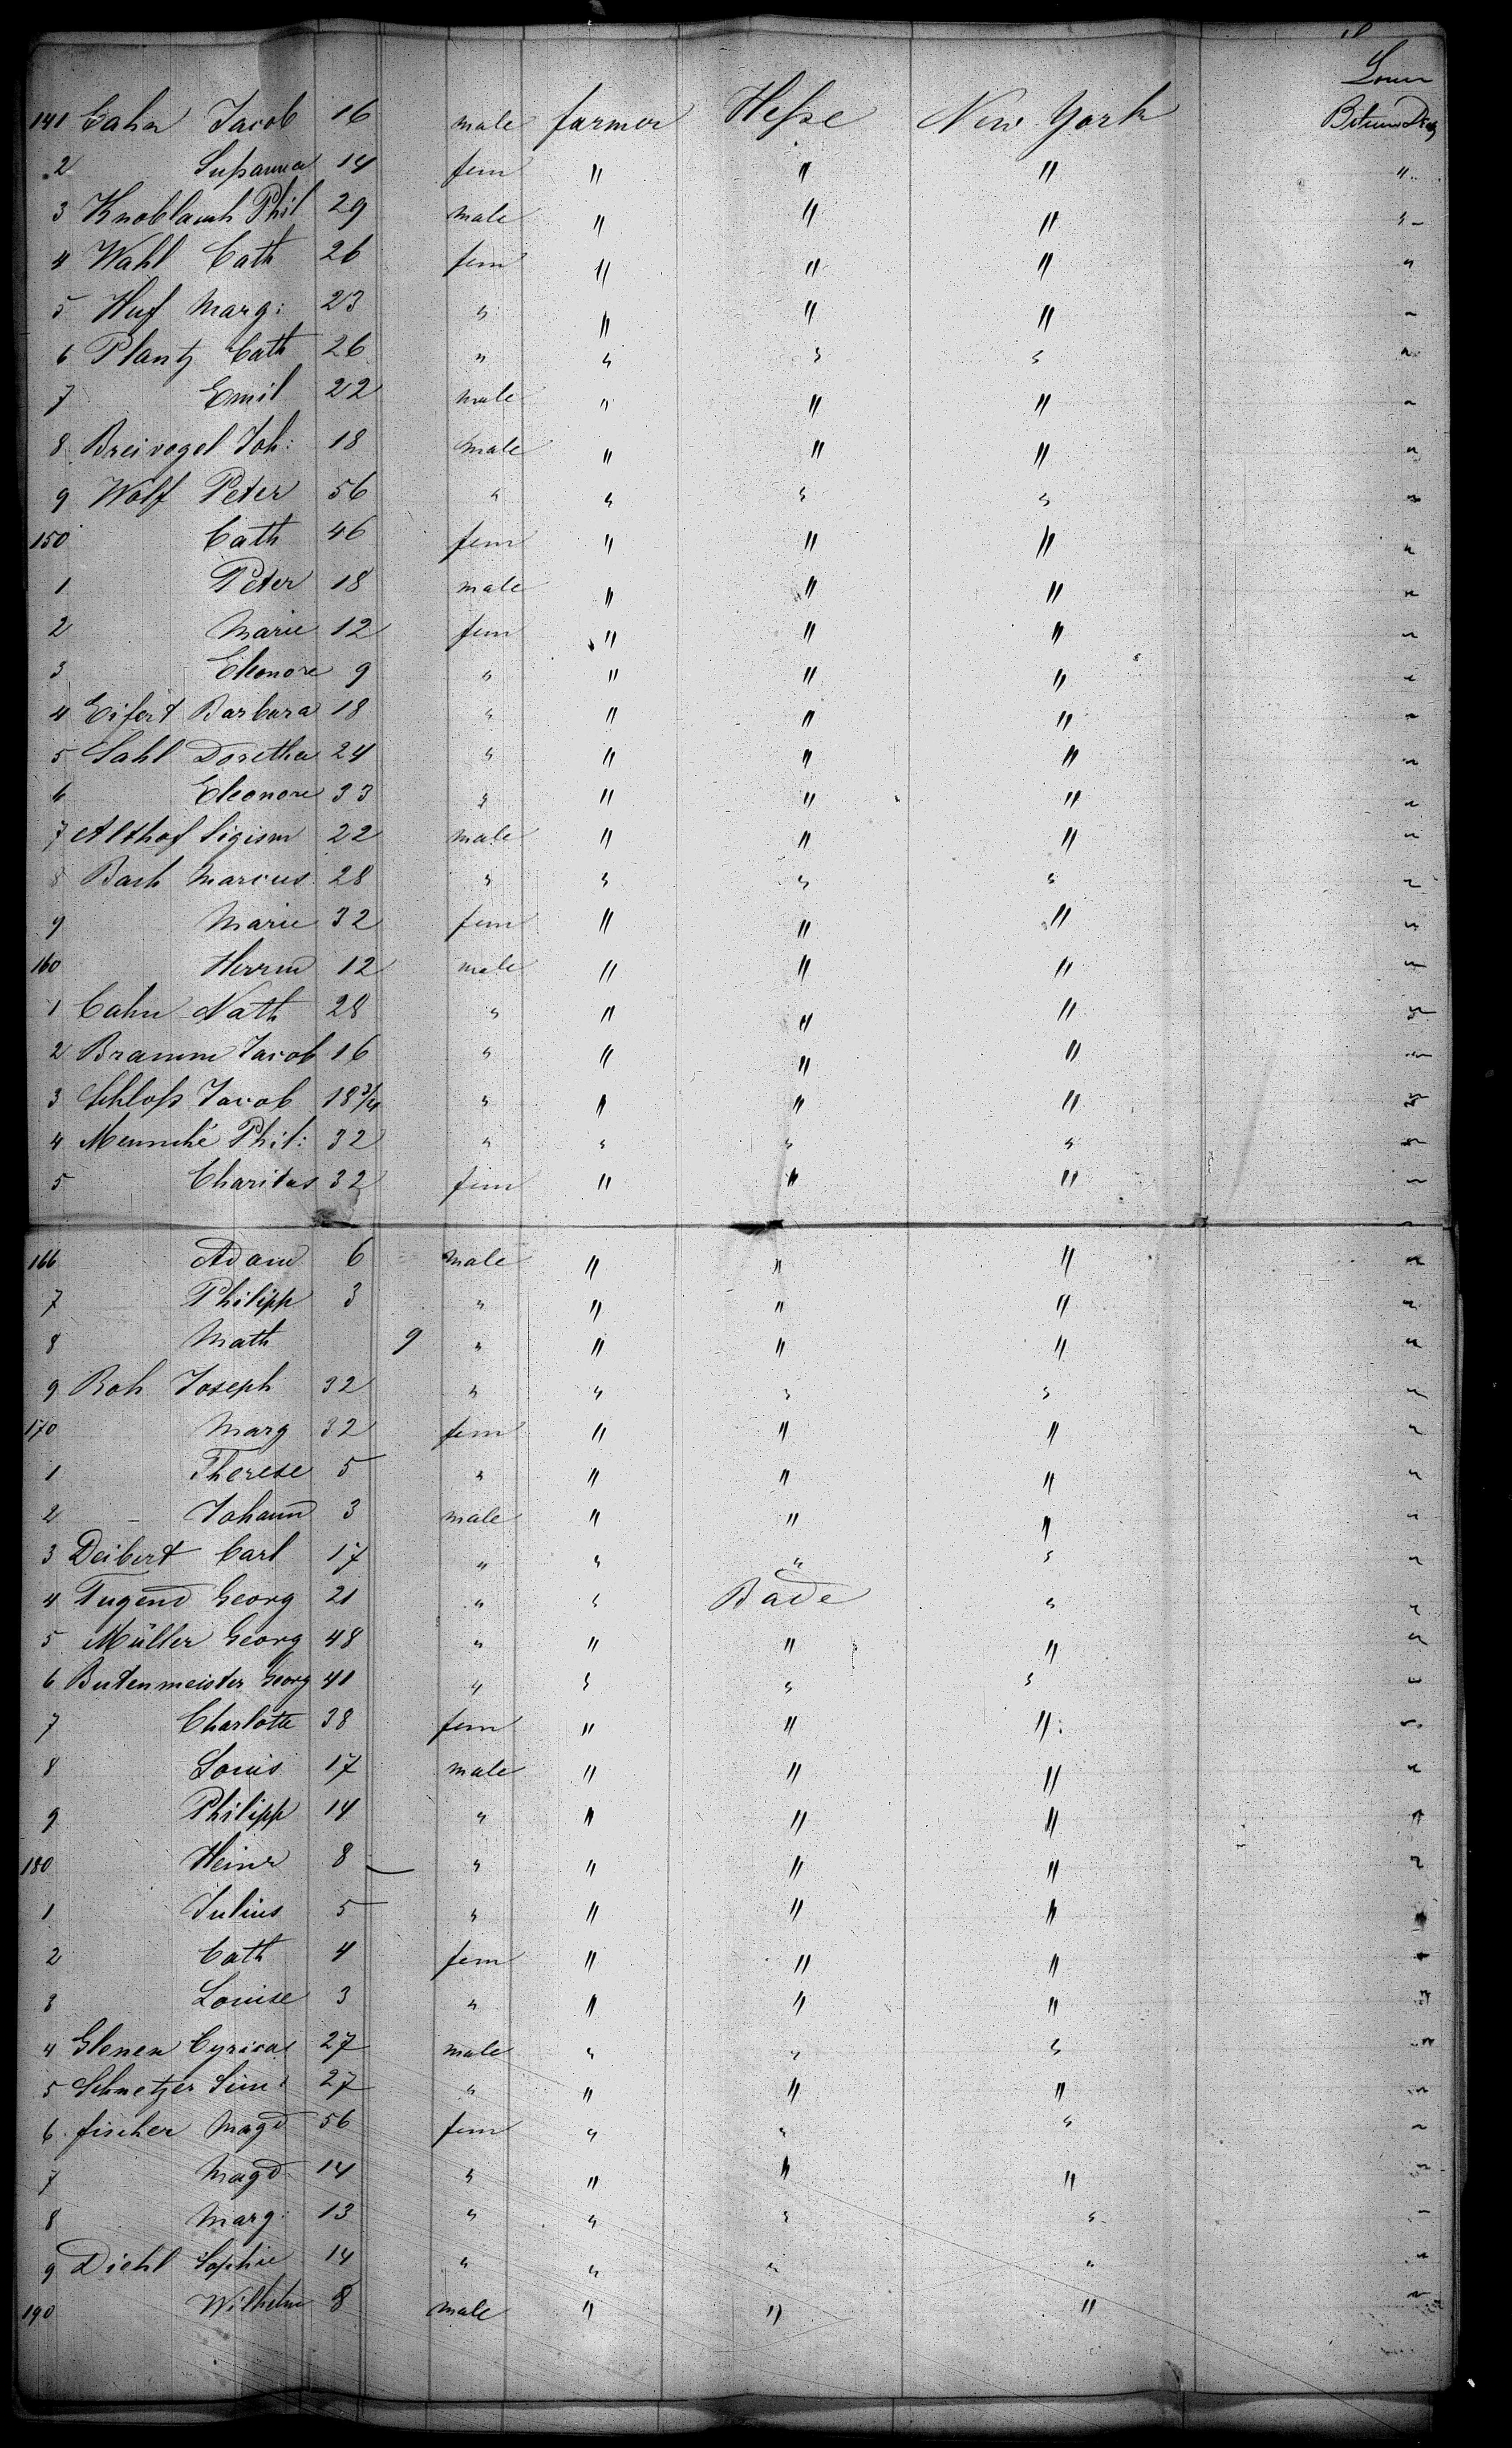 Lower
141 Cahn Jacob 16 male farmer Heſse New York Between Decks
2 Suſanna 14 fem " " " "
3 Knoblauch Phil 29 male " " " "
4 Wahl Cath 26 fem " " " "
5 Huf Marg: 23 " " " " "
6 Plantz Cath 26 " " " " "
7 Emil 22 male " " " "
8 Breivogel Joh: 18 male " " " "
9 Wolf Peter 56 " " " " "
150 Cath 46 fem " " " "
1 Peter 18 male " " " "
2 Marie 12 fem " " " "
3 Eleonore 9 " " " " "
4 Eifert Barbara 18 " " " " "
5 Sahl Dorethea 24 " " " " "
6 Eleonore 33 " " " " "
7 Althof Sigism 22 male " " " "
8 Bach Marcus 28 " " " " "
9 Marie 32 fem " " " "
160 Herrm 12 male " " " "
1 Cahn Nath 28 " " " " "
2 Bramm Jacob 16 " " " " "
3 Schloſs Jacob 18 3/4 " " " " "
4 Phil: 32 " " " " "
5 Charitas 32 fem " " " "
166 Adam 6 male " " " "
7 Philipp 3 " " " " "
8 Math 9 " " " " "
9 Roh Joseph 32 " " " " "
170 Marg 32 fem " " " "
1 Therese 5 " " " " "
2 Johann 3 male " " " "
3 Deibert Carl 17 " " " " "
4 Tugend Georg 21 " " Bade " "
5 Müller Georg 48 " " " " "
6 Butenmeister Georg 41 " " " " "
7 Charlotte 38 fem " " " "
8 Louis 17 male " " " "
9 Philipp 14 " " " " "
180 Heinr 8 " " " " "
1 Julius 5 " " " " "
2 Cath 4 fem " " " "
3 Louise 3 " " " " "
4 Glenen 27 male " " " "
5 Schnetzer Sim: 27 " " " " "
6 fischer Magd 56 fem " " " "
7 Magd 14 " " " " "
8 Marg: 13 " " " " "
9 Diehl Sophie 14 " " " " "
190 Wilhelm 8 male " " " "